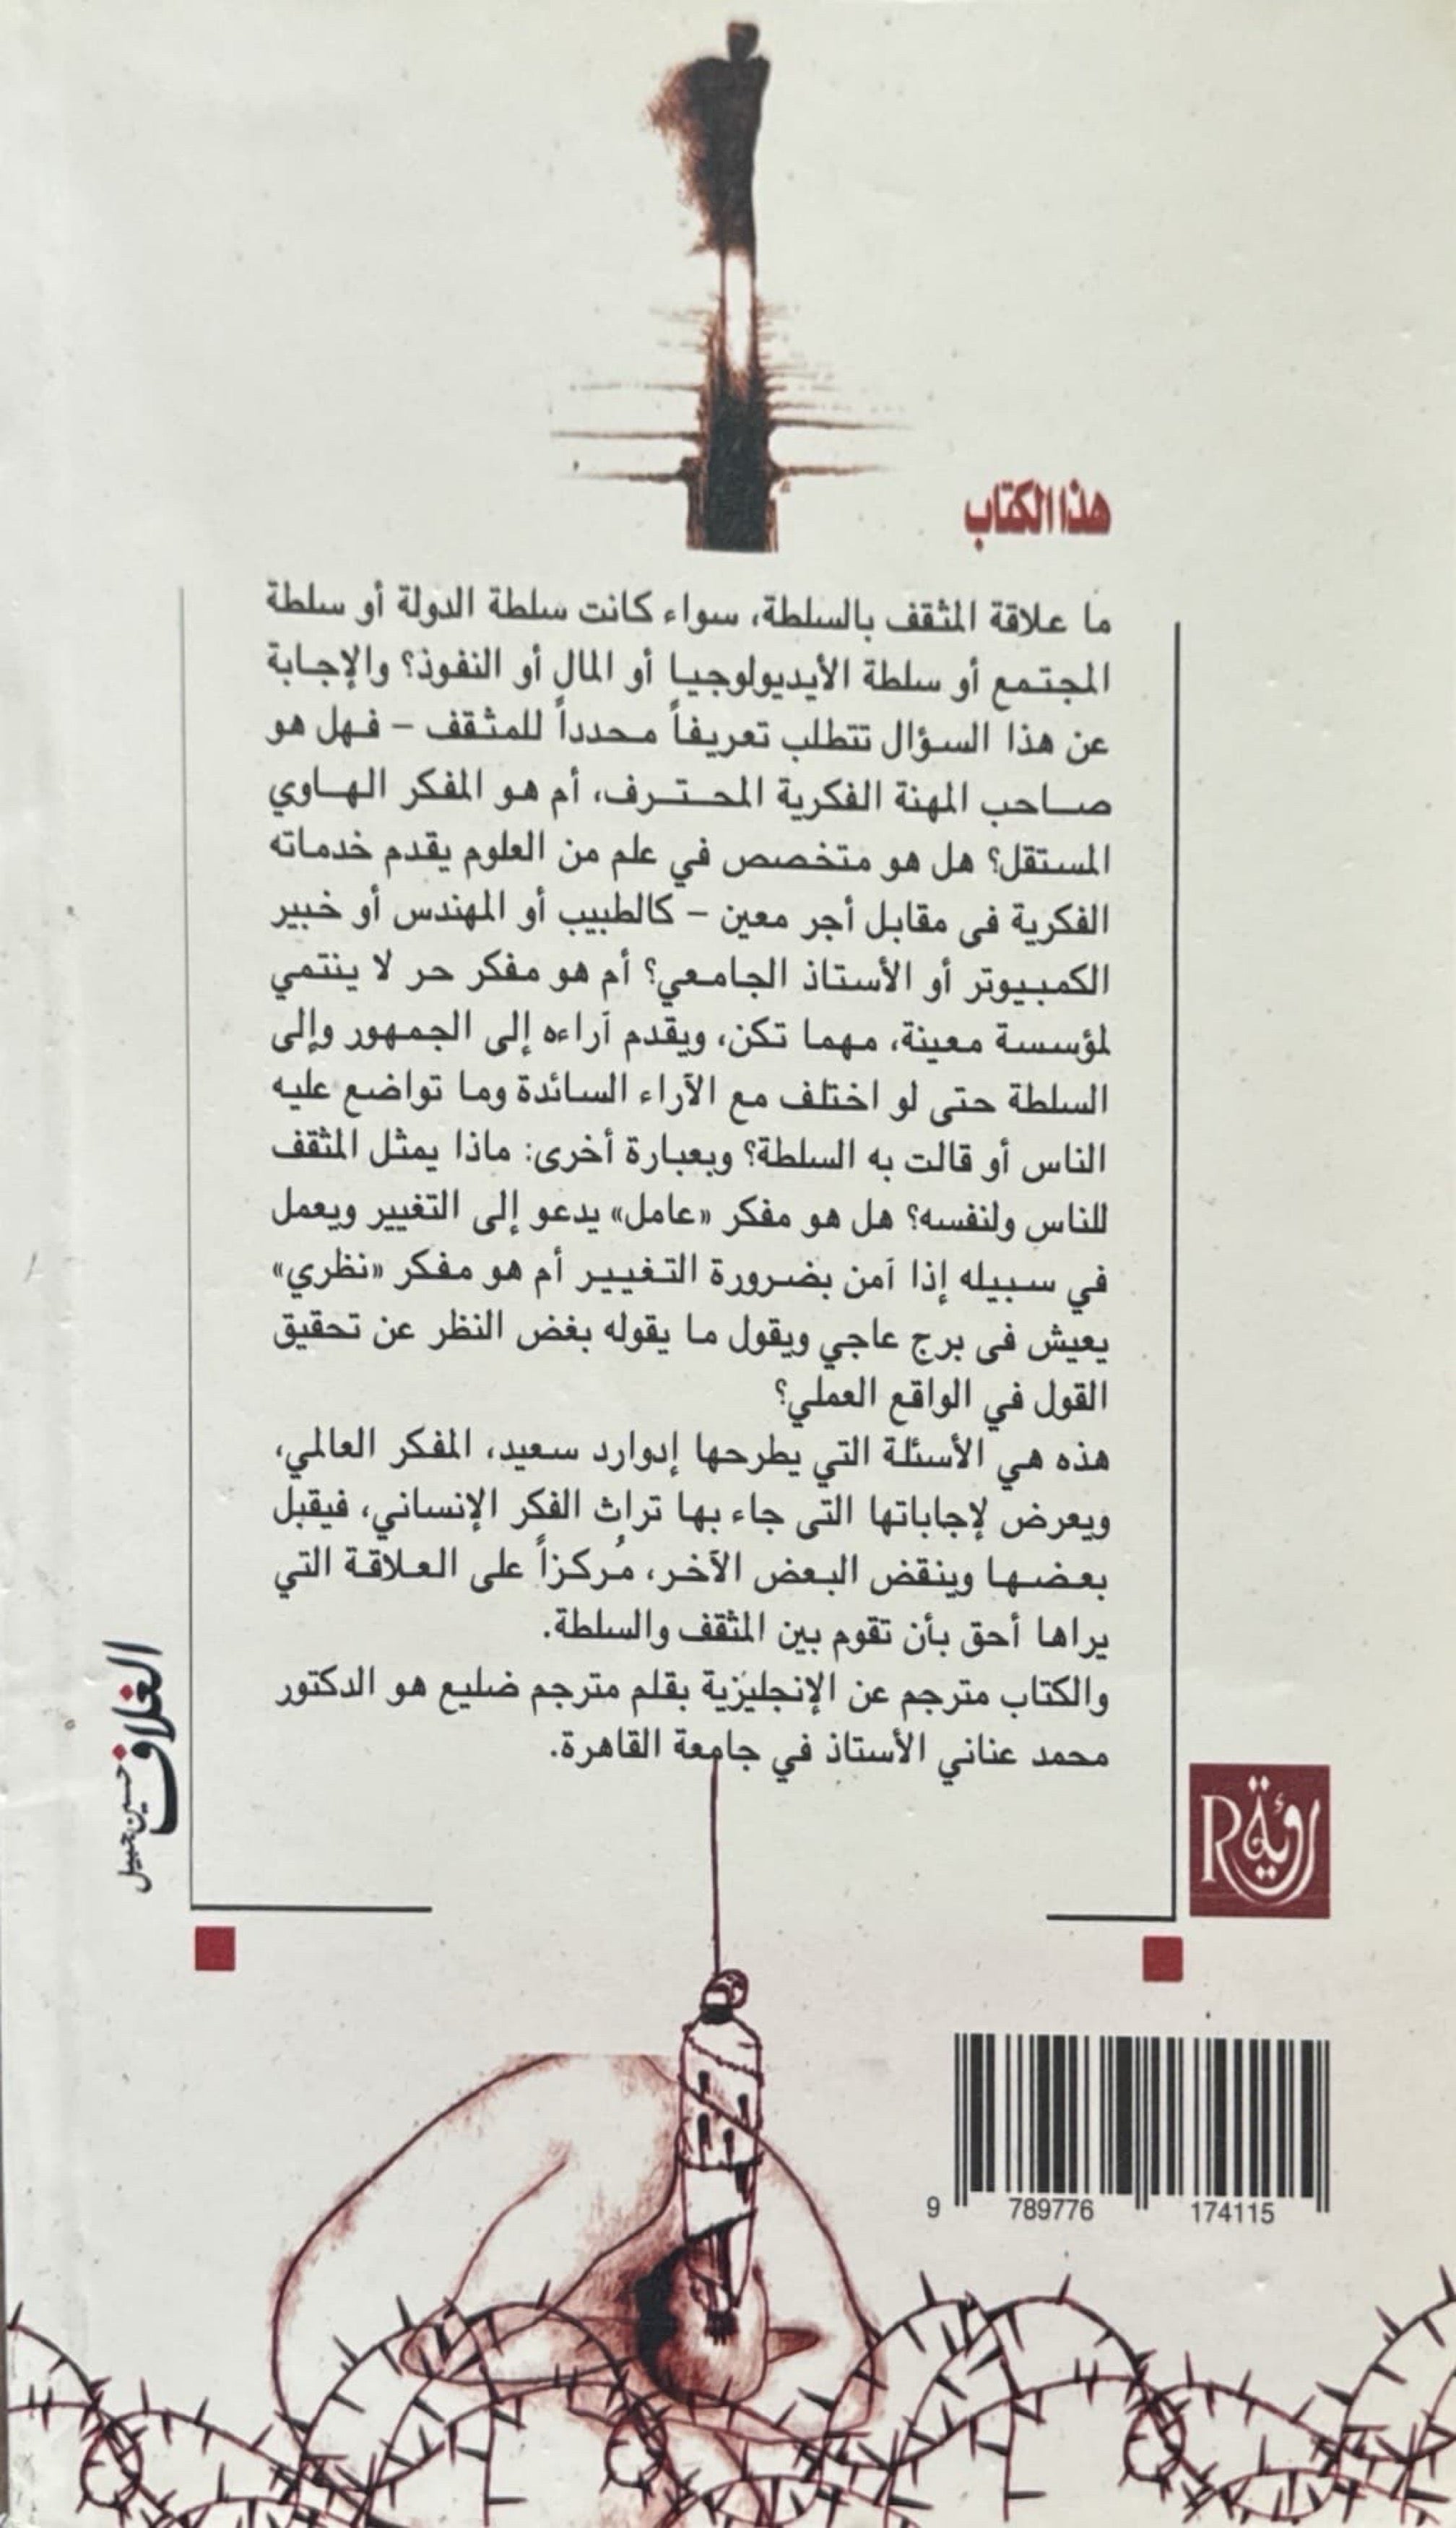 هذا الكتاب
ما علاقة المثقف بالسلطة، سواء كانت سلطة الدولة أو سلطة
المجتمع أو سلطة الأيديولوجيا أو المال أو النفوذ؟ والإجابة
عن هذا السؤال تتطلب تعريفاً محدداً للمثقف – فهل هو
صاحب المهنة الفكرية المحترف، أم هو المفكر الهاوي
المستقل؟ هل هو متخصص في علم من العلوم يقدم خدماته
الفكرية فى مقابل أجر معين – كالطبيب أو المهندس أو خبير
الكمبيوتر أو الأستاذ الجامعي؟ أم هو مفكر حر لا ينتمي
لمؤسسة معينة، مهما تكن، ويقدم آراءه إلى الجمهور وإلى
السلطة حتى لو اختلف مع الآراء السائدة وما تواضع عليه
الناس أو قالت به السلطة؟ وبعبارة أخرى: ماذا يمثل المثقف
للناس ولنفسه؟ هل هو مفكر «عامل» يدعو إلى التغيير ويعمل
في سبيله إذا آمن بضرورة التغيير أم هو مفكر «نظري»
يعيش فى برج عاجي ويقول ما يقوله بغض النظر عن تحقيق
القول في الواقع العملي؟
هذه هي الأسئلة التي يطرحها إدوارد سعيد، المفكر العالمي،
ويعرض لإجاباتها التى جاء بها تراث الفكر الإنساني، فيقبل
بعضها وينقض البعض الآخر، مُركزاً على العلاقة التي
يراها أحق بأن تقوم بين المثقف والسلطة.
والكتاب مترجم عن الإنجليزية بقلم مترجم ضليع هو الدكتور
محمد عناني الأستاذ في جامعة القاهرة.
الغلاف
حسين جبيل
رؤية R
9 789776 174115